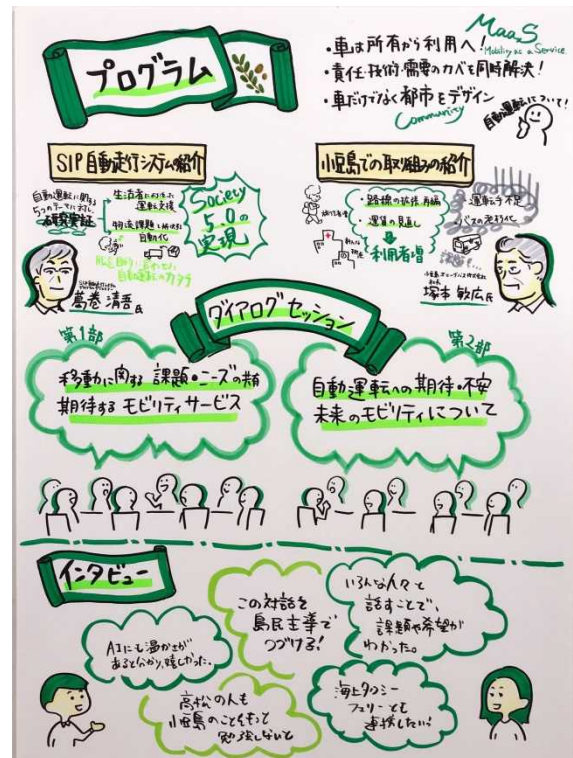 プログラム
MaaS
Mobility as a Service
・車は所有から利用へ!
・責任・技術・需要のカベを同時解決!
・車だけでなく都市をデザイン
Community
自動運転について!
SIP自動走行システムの紹介
自動運転に関する
5つのテーマに対し、
研究実証
生活者にとっての
運転支援
物流課題に向けた
自動化
Society
5.0の
実現
自動運転のカタチ
葛巻 清吾氏
小豆島での取り組みの紹介
・路線の拡張・再編
・運賃の見直し
利用者増
運転手不足
バスの老朽化
小豆島オリーブバス株式会社
塚本 敏広氏
ダイアログセッション
第1部
移動に関する課題・ニーズの共有
期待するモビリティサービス
第2部
自動運転への期待・不安
未来のモビリティについて
インタビュー
AIにも温かさが
あると分かり、嬉しかった。
この対話を
島民主導で
つづける!
いろんな人々と
話すことで、
課題や希望が
わかった。
高松の人も
小豆島のことをもっと
勉強しないと
海上タクシー
フェリーとも
連携したい!